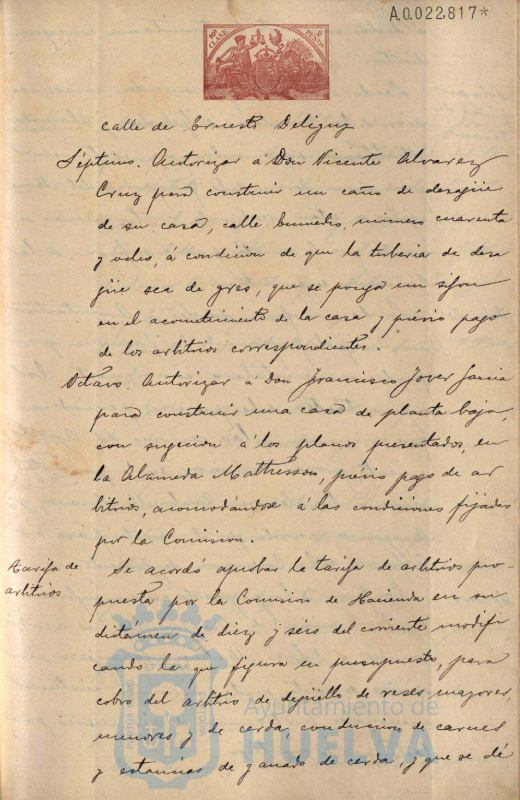 A.0.022,817*
10ª CLASE 2 PESETAS
calle de Ernesto Deligny
Séptimo. Autorizar á Don Vicente Alvarez
Cruz para construir un caño de desagüe
de su casa, calle número cuarenta
y ocho, á condicion de que la tuberia de desa
güe sea de gres, que se ponga un sifon
en el acometimiento de la casa y prévio pago
de los arbitrios correspondientes.
Octavo. Autorizar á Don Francisco Jover Garcia
para construir una casa de planta baja,
con sugecion á los planos presentados, en
la Alameda Mathesson, prévio pago de ar
bitrios, acomodandose á las condiciones fijadas
por la Comision.
Tarifa de
arbitrios
Se acordó aprobar la tarifa de arbitrios pro-
puesta por la Comision de Hacienda en su
dictámen de diez y seis del corriente modifi
cando la que figura en presupuesto, para
cobro del arbitrio de degüello de reses mayores,
menores y de cerda, conduccion de carnes
y estancias de ganado de cerda, y que se dé
Ayuntamiento de
HUELVA